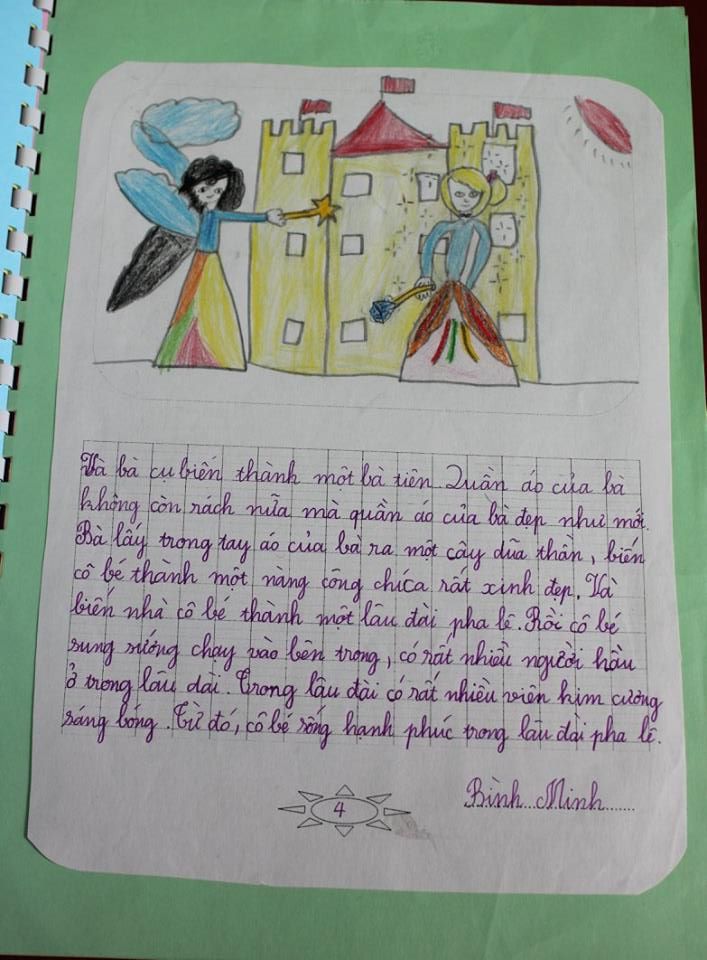 Và bà cụ biến thành một bà tiên. Quần áo của bà
không còn rách nữa mà quần áo của bà đẹp như mới.
Bà lấy trong tay áo của bà ra một cây đũa thần, biến
cô bé thành một nàng công chúa rất xinh đẹp. Và
biến nhà cô bé thành một lâu đài pha lê. Rồi cô bé
sung sướng chạy vào bên trong, có rất nhiều người hầu
ở trong lâu đài. Trong lâu đài có rất nhiều viên kim cương
sáng bóng. Từ đó, cô bé sống hạnh phúc trong lâu đài pha lê.
Bình...Minh.......
4